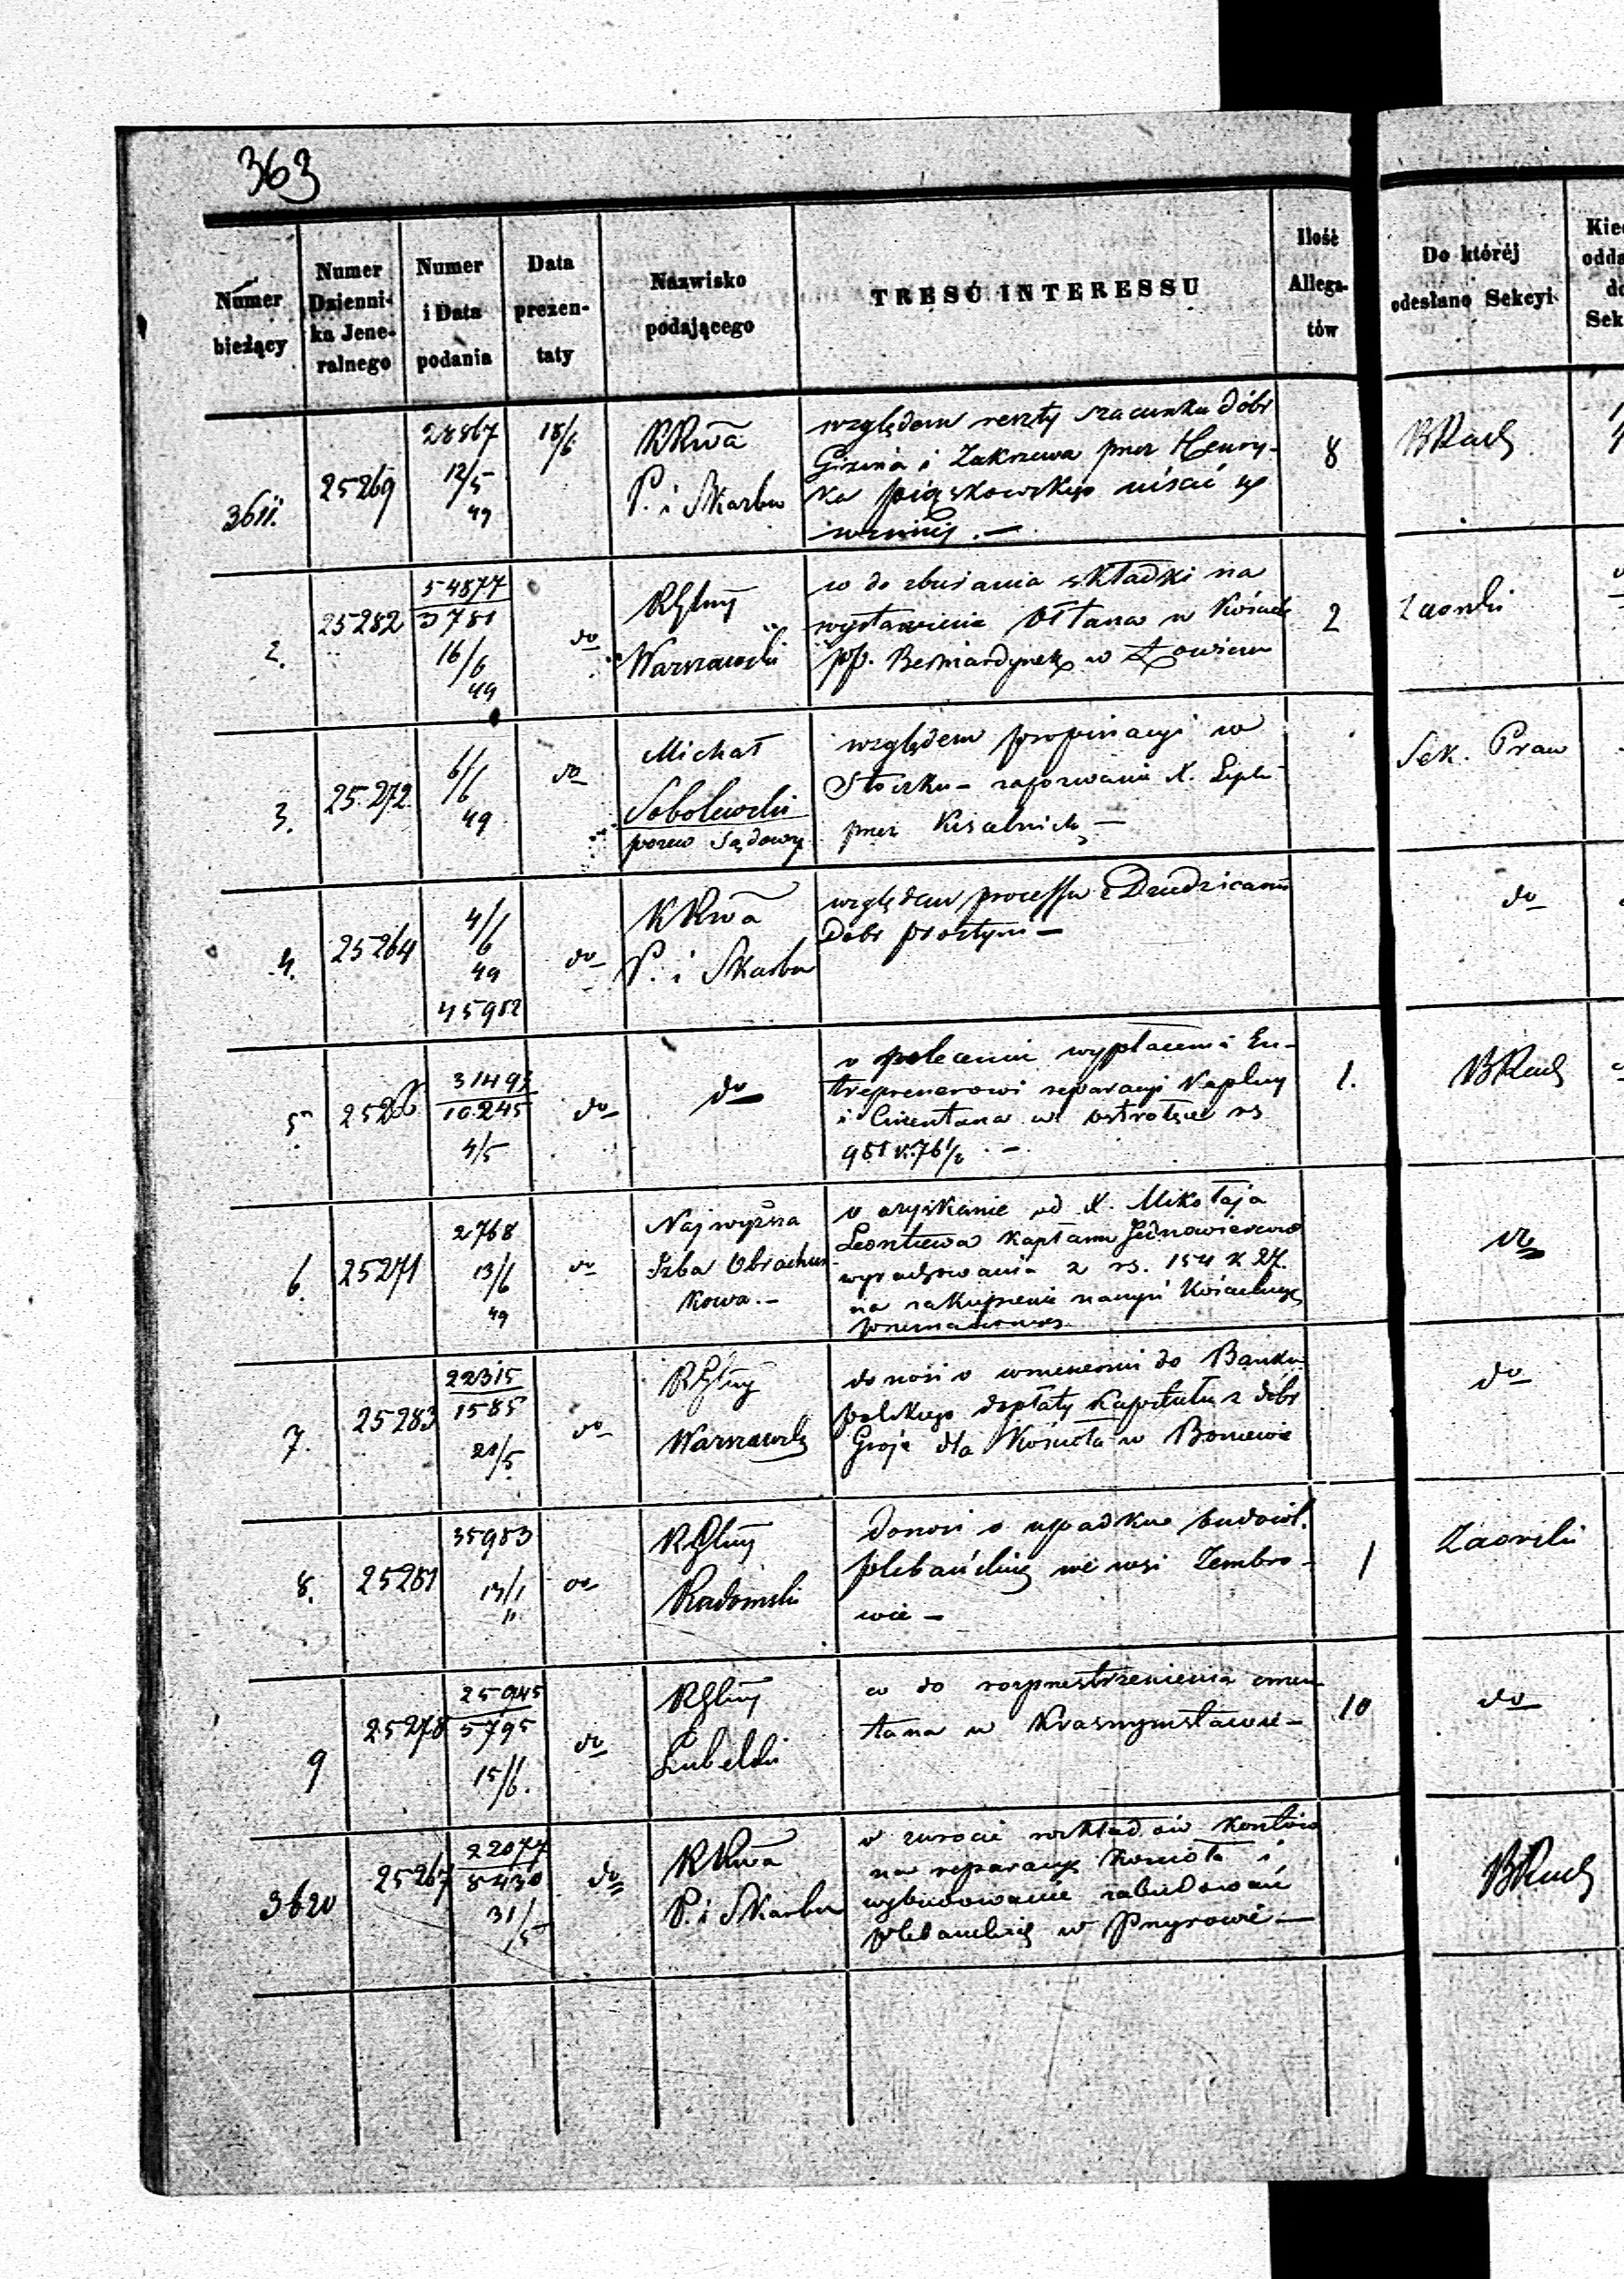 363
Numer bieżący
Numer Dzienni- ka Jene- ralnego
Numer i Data podania
Data prezen- taty
Nazwisko podającego
TREŚĆ INTERESSU
Ilość Allega- tów
Do któréj odesłano Sekcyi
3611.
25269
28867
12/5
49
18/6
KRwa
P. i Skarbu
względem reszty szacunku dóbr
i Zakrzewa przez Henry-
ka
8
2.
25282
54877
3781
16/6
49
do
RGlny
Warszawski
co do zbierania składki na
wystawienie Ołtarza w Kościele
pp. Bernardynek w Łowiczu
2
3.
25.272
6/6
49
do
Michał
Sobolewski
pozew Sądowy
względem propinacyi w
Stoczku – zapozwanie X.
przez
Sek. Praw
4.
25264
4/6
49
do
KRwa
P. i Skarbu
względem processu z Dziedzicami
Dóbr
do
45982
5
31493
10.245
4/5
do
do
o polecenie wypłacenia En-
treprenerowi reparacyi Kaplicy
i Cmentarza w Ostrołęce rs
981 k. 76½ . –
1.
6.
25271
2768
13/6
49
do
Najwyższa
Izba Obrachun-
kowa. –
o uzyskanie od X. Mikołaja
Leontiewa kapłana
wyrachowania z rs. 154 k 27.
na zakupienie naczyń Kościelnych
do
7.
25283
22315
1585
21/5
do
RGlny
Warszawski
donosi o wniesieniu do Banku
polskiego dopłaty kapitału z dóbr
dla Kościoła w Boniewie
do
8.
25281
35983
13/1
do
RGlny
Radomski
donosi o upadku budowl.
plebańskiej we wsi Zembro-
wie –
1
9
25278
25945
5795
15/6.
do
RGlny
Lubelski
co do rozprzestrzenienia cmen-
tarza w Krasnymstawie –
10
do
3620
25267
22077
8430
31/5
do
KRwa
P. i Skarbu
o zwrocie rozkładów kosztów
na reparacyę Kościoła i
wybudowanie zabudowań
plebańskich w Przyrowie –